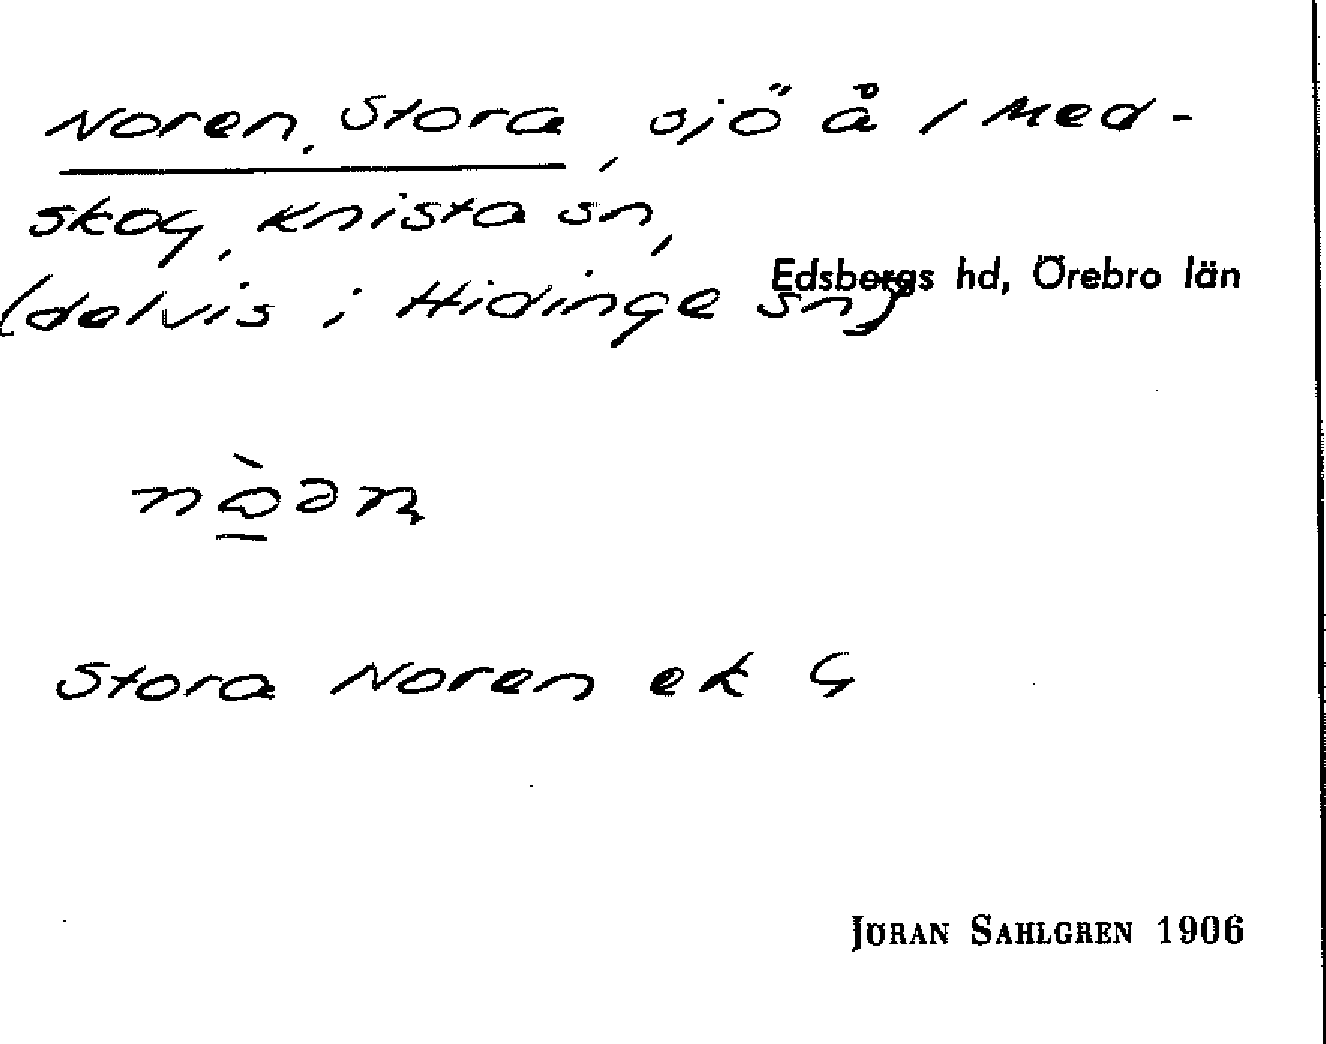 Noren, Stora, sjö å 1 Med-
skog, Knista sn,
Edsbergs hd, Örebro län
(delvis i Hidinge sn)
Stora Noren ek
JÖRAN SAHLGREN 1906